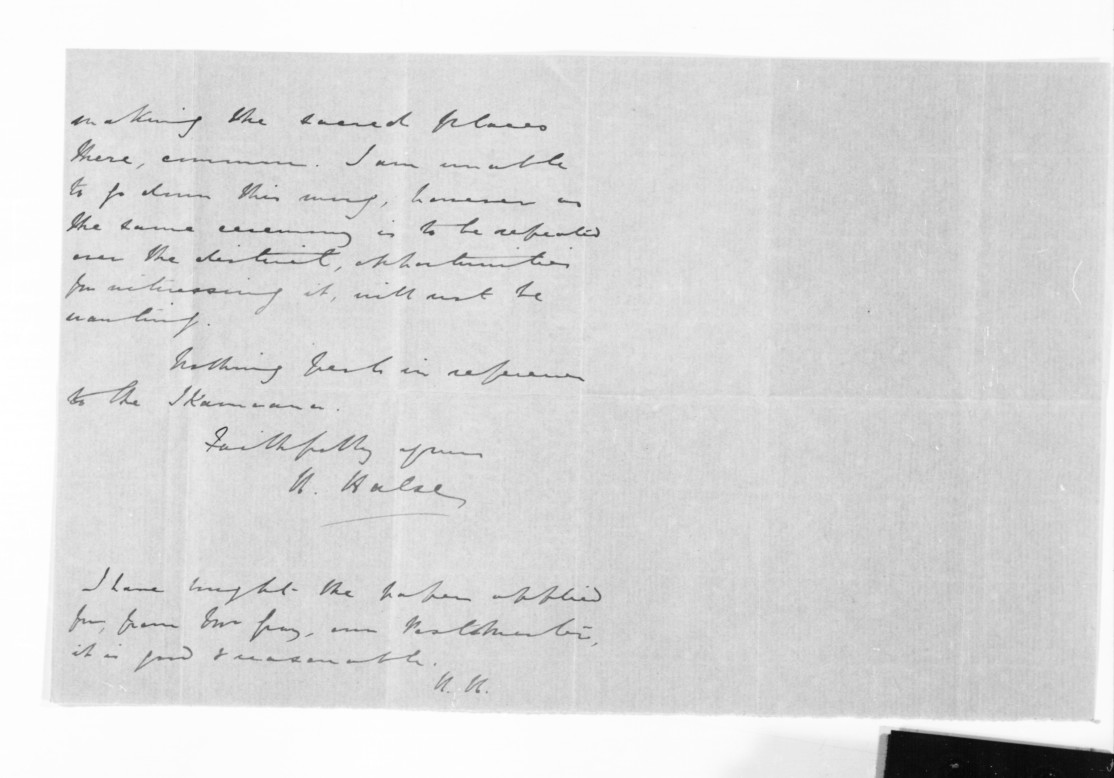 making the sacred places
there, common. I am unable
to go down this morng, however as
the same ceremony is to be repeated
over the district, opportunities
for witnessing it, will not be
wanting.
Nothing fresh in reference
to the Ikamoana.
Faithfully yours
H. Halse
I have bought the paper applied
for, from Mr Gray, our Postmaster,
it is good & reasonable.
H. H.